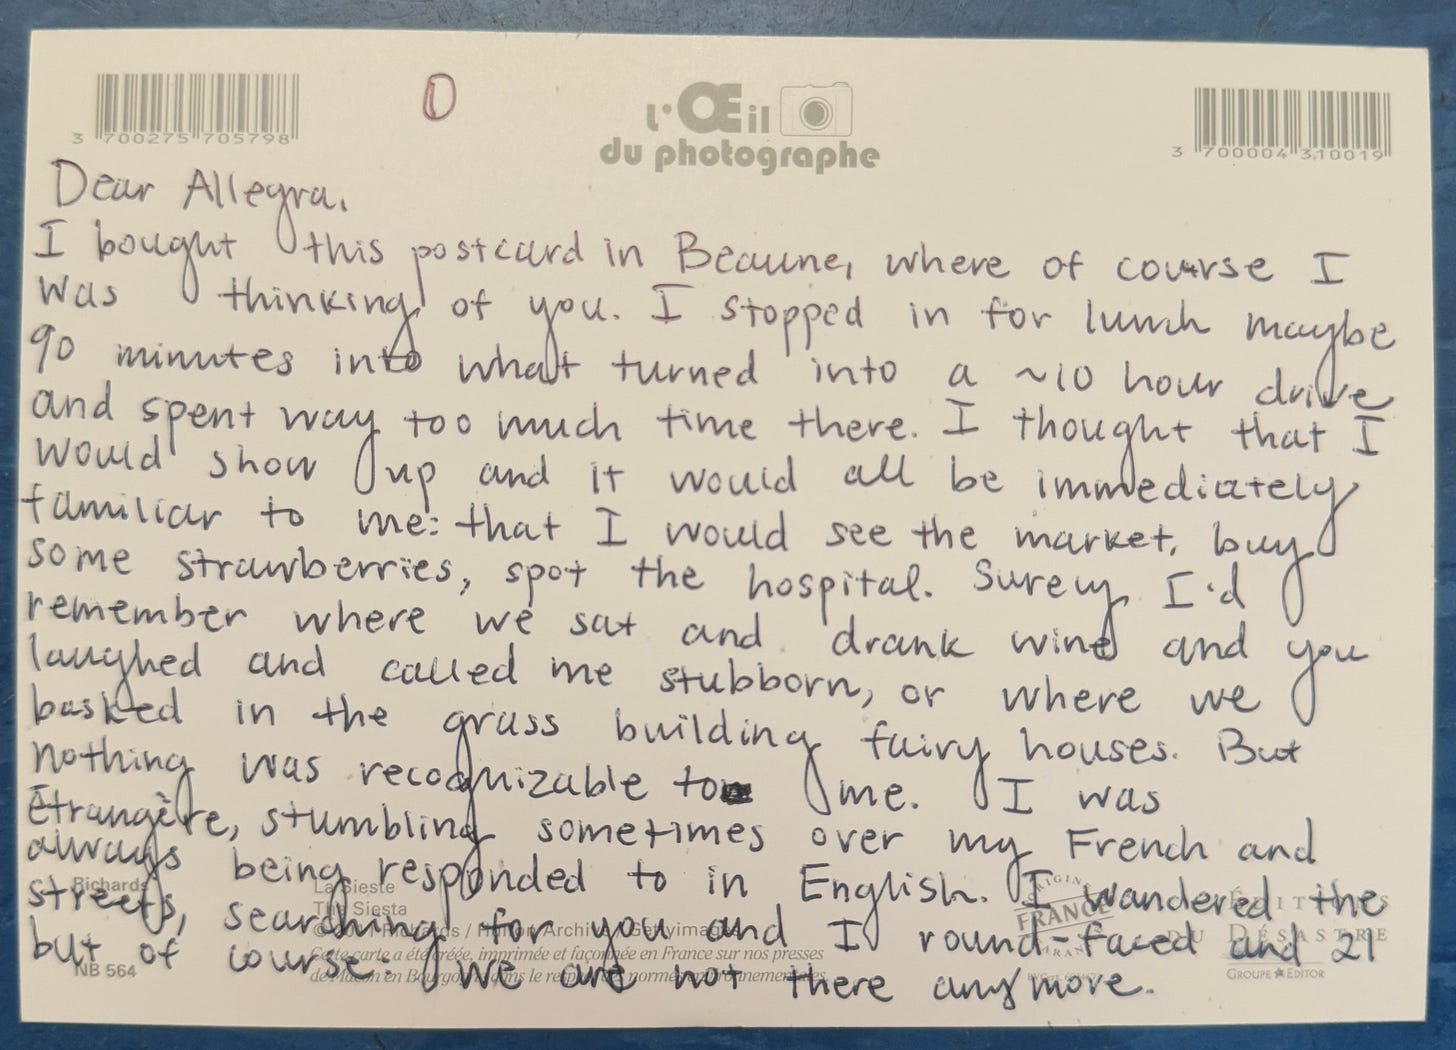 3 700275 705798
①
l'Œil
du photographe
3 700004 310019
Dear Allegra,
I bought this postcard in Beaune, where of course I
was thinking of you. I stopped in for lunch maybe
90 minutes into what turned into a ~10 hour drive
and spent way too much time there. I thought that I
would show up and it would all be immediately
familiar to me: that I would see the market, buy
some strawberries, spot the hospital. Surely I'd
remember where we sat and drank wine and you
laughed and called me stubborn, or where we
basked in the grass building fairy houses. But
nothing was recognizable to me. I was
Étrangère, stumbling sometimes over my French and
always being responded to in English. I wandered the
streets, searching for you and I round-faced and 21
but of course: we are not there anymore.
Richards
NB 564
La Sieste
The Siesta
Richards / Archive / Gettyimages
Cette carte a été créée, imprimée et façonnée en France sur nos presses
de Mâcon en Bourgogne dans le normes environnementales
ORIGINE
FRANCE
ÉDITIONS
DU DÉSASTRE
GROUPE EDITOR